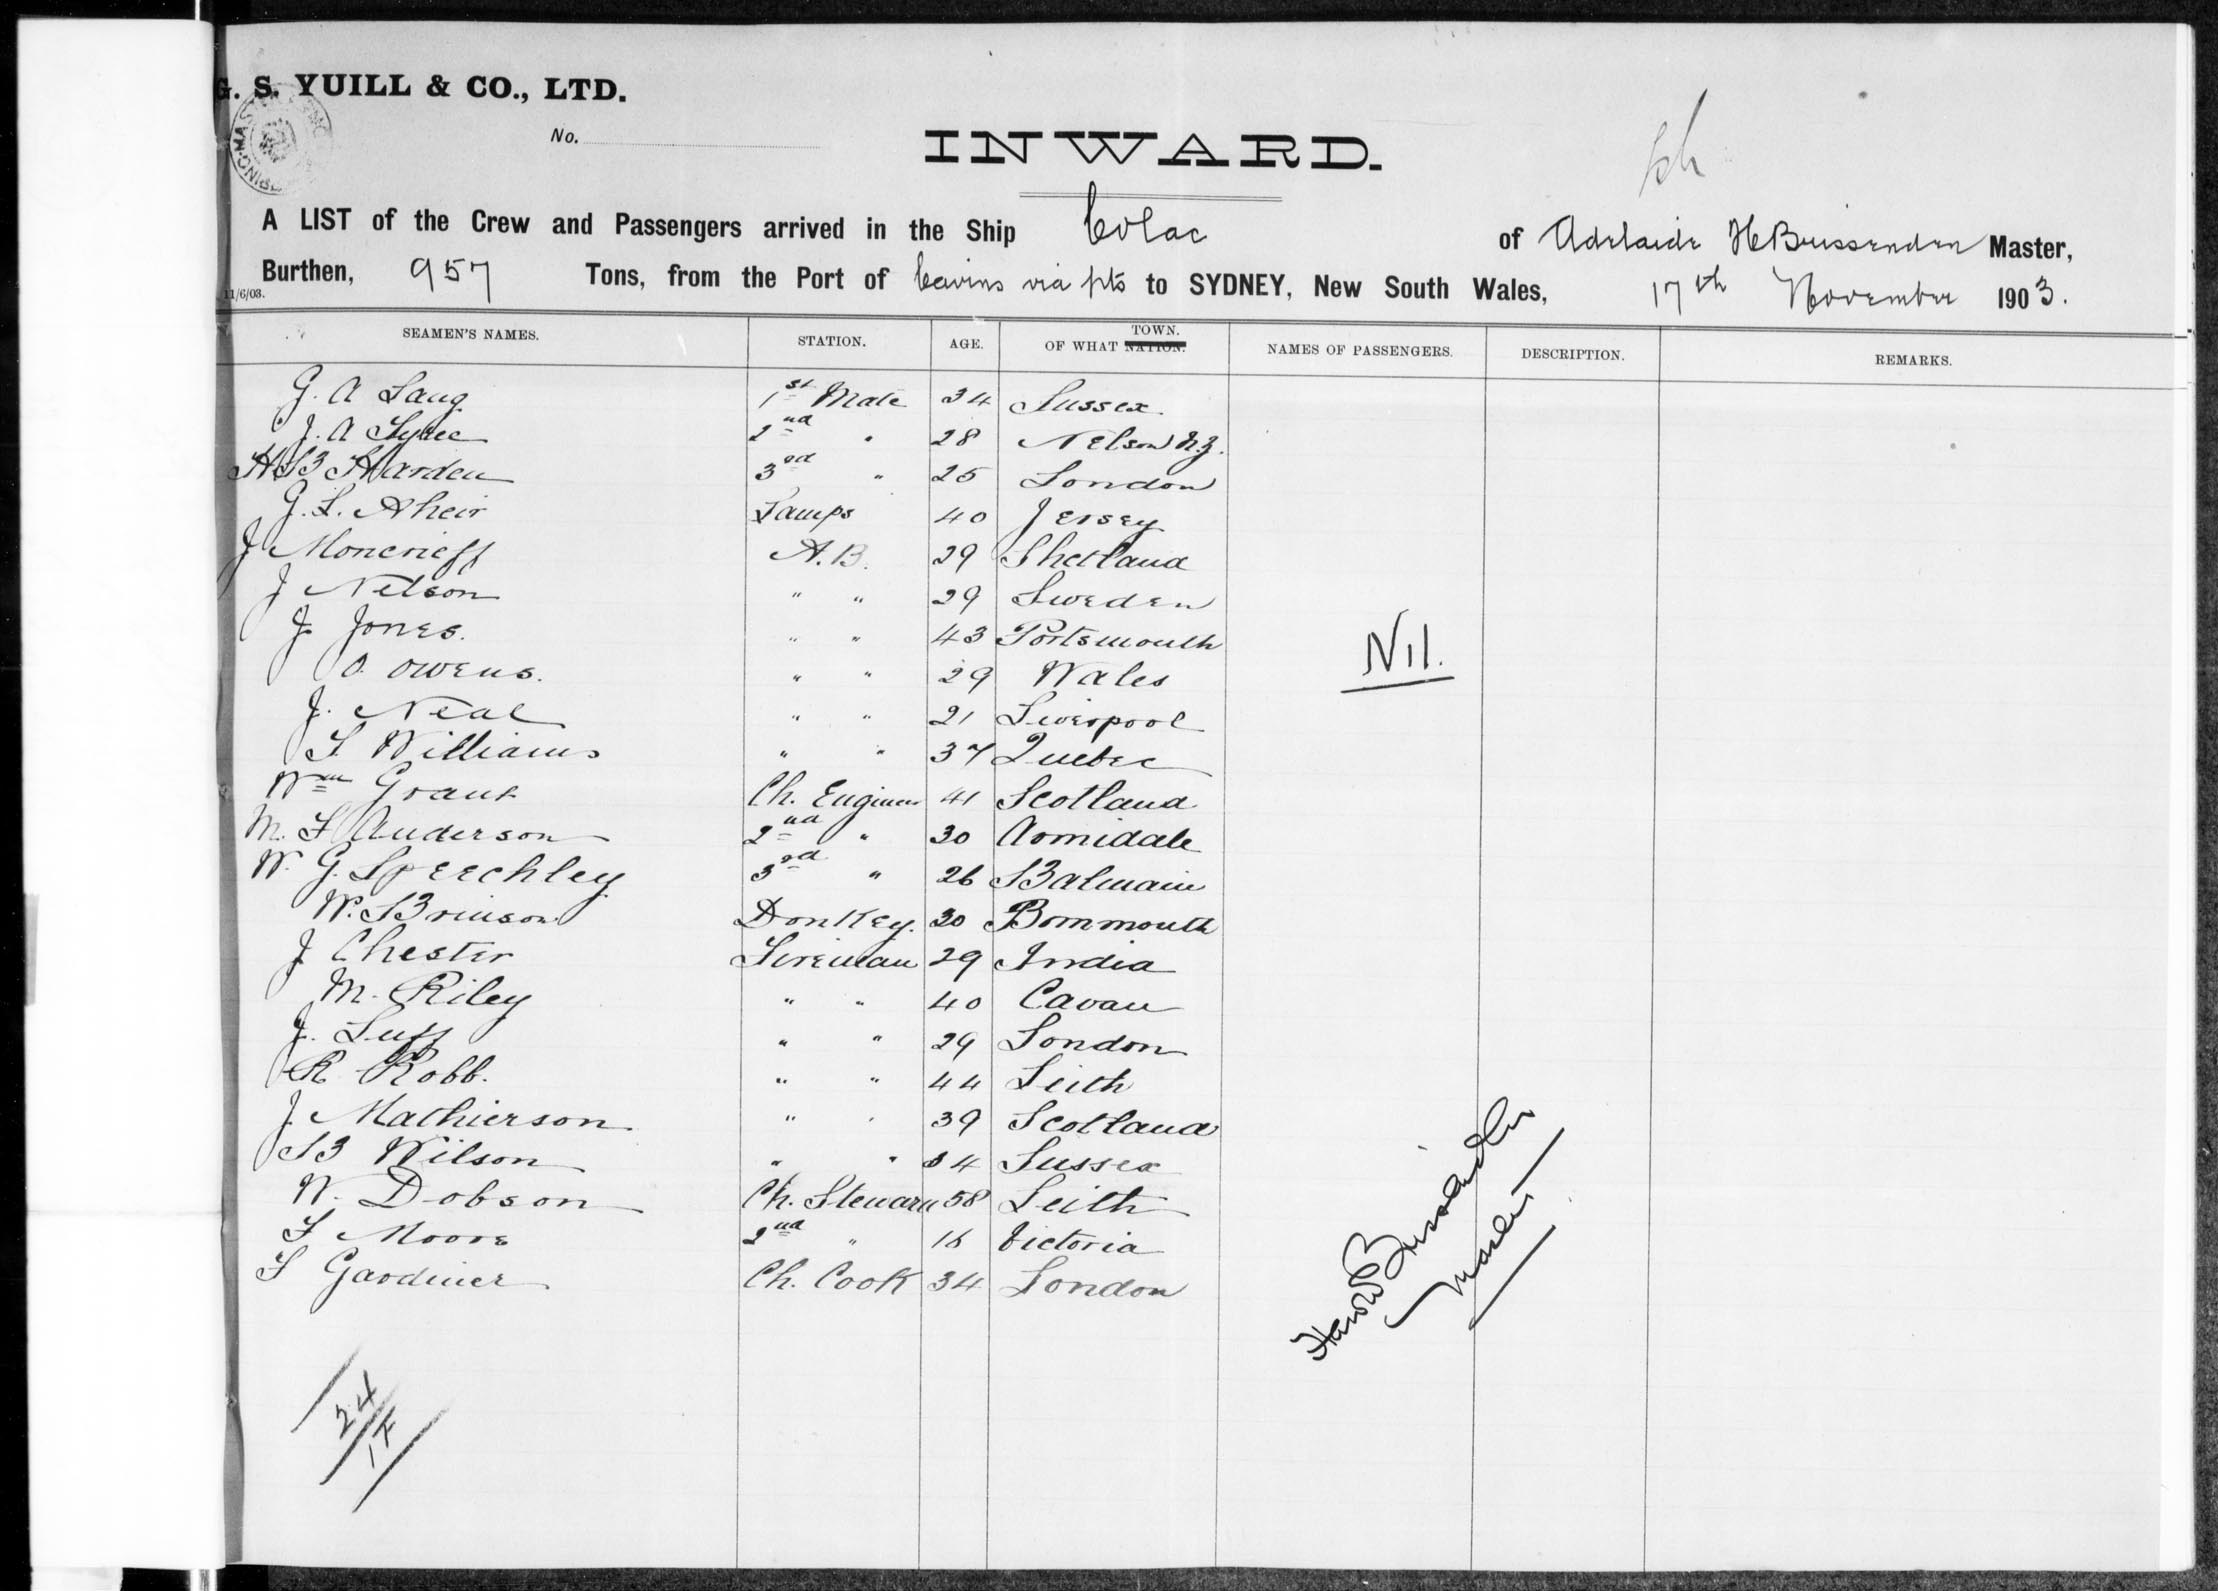 G. S. YUILL & CO., LTD.
No.
INWARD.
A LIST of the Crew and Passengers arrived in the Ship Colac of Adelaide H Brissenden Master,
Burthen, 957 Tons, from the Port of Cairns via pts to SYDNEY, New South Wales, 17th November 1903.
11/6/03.
SEAMEN'S NAMES. STATION. AGE. OF WHAT NATION. TOWN. NAMES OF PASSENGERS. DESCRIPTION. REMARKS.
G. A Lang 1st Mate 34 Sussex.
J. A 2nd " 28 Nelson N.Z.
H B Harden 3rd " 25 London
G. L. Aheir Lamps 40 Jersey
J Moncrieff A.B. 29 Shetland
J Nelson " " 29 Sweden
J. Jones. " " 43 Portsmouth
O. Owens. " " 29 Wales
J. Neal " " 21 Liverpool
Williams " " 37 Quebec
Wm Grant Ch. Engineer 41 Scotland
M. F Anderson 2nd " 30 Armidale
W. G. Speechley 3rd " 26 Balmain
W. Brinson Donkey. 30 Bornmouth
J Chester Fireman 29 India
M. Riley " " 40 Cavan
J. Luff " " 29 London
R Robb. " " 44 Leith
J Mathierson " " 39 Scotland
B Wilson " " 34 Sussex
W. Dobson Ch. Steward 58 Leith
F Moore 2nd " 16 Victoria
Gardiner Ch. Cook 34 London
Nil.
Harold Brissenden
Master
24
1F